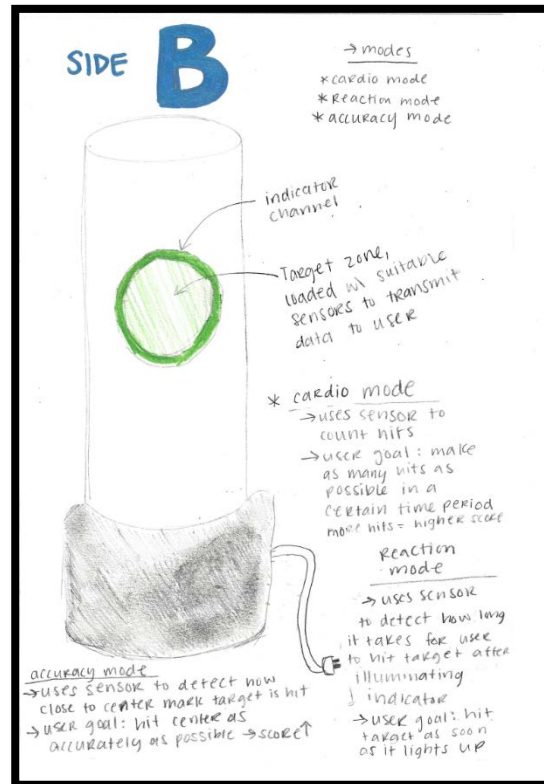 SIDE B
→ modes
* cardio mode
* Reaction mode
* accuracy mode
indicator
channel
Target zone,
loaded w/ suitable
sensors to transmit
data to user
* cardio mode
→ uses sensor to
count hits
→ user goal: make
as many hits as
possible in a
certain time period
more hits = higher score
Reaction
mode
→ uses sensor
to detect how long
it takes for user
to hit target after
illuminating
↓ indicator
→ user goal: hit
target as soon
as it lights up
accuracy mode
→ uses sensor to detect how
close to center mark target is hit
→ user goal: hit center as
accurately as possible → score ↑